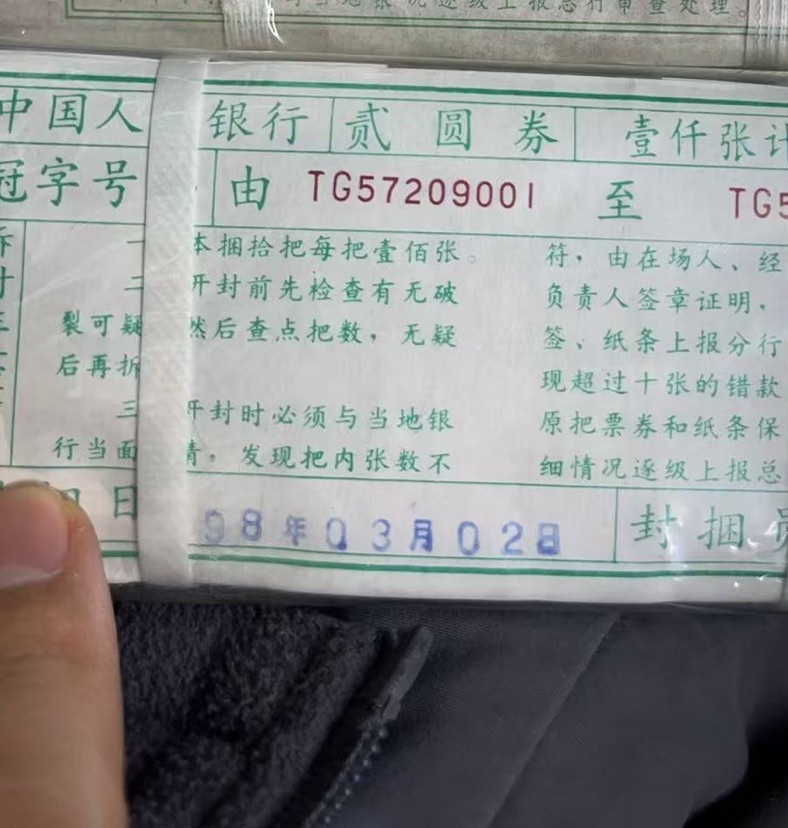 况逐级上报总行审查处理。
中国人 银行 贰圆券 壹仟张计
冠字号 由 TG57209001 至 TG5
一 本捆拾把每把壹佰张。
二 开封前先检查有无破
裂可疑 然后查点把数，无疑
后再拆
三 开封时必须与当地银
行当面 清，发现把内张数不
符，由在场人、经
负责人签章证明，
签、纸条上报分行
现超过十张的错款
原把票券和纸条保
细情况逐级上报总
日 98年03月02日 封捆员